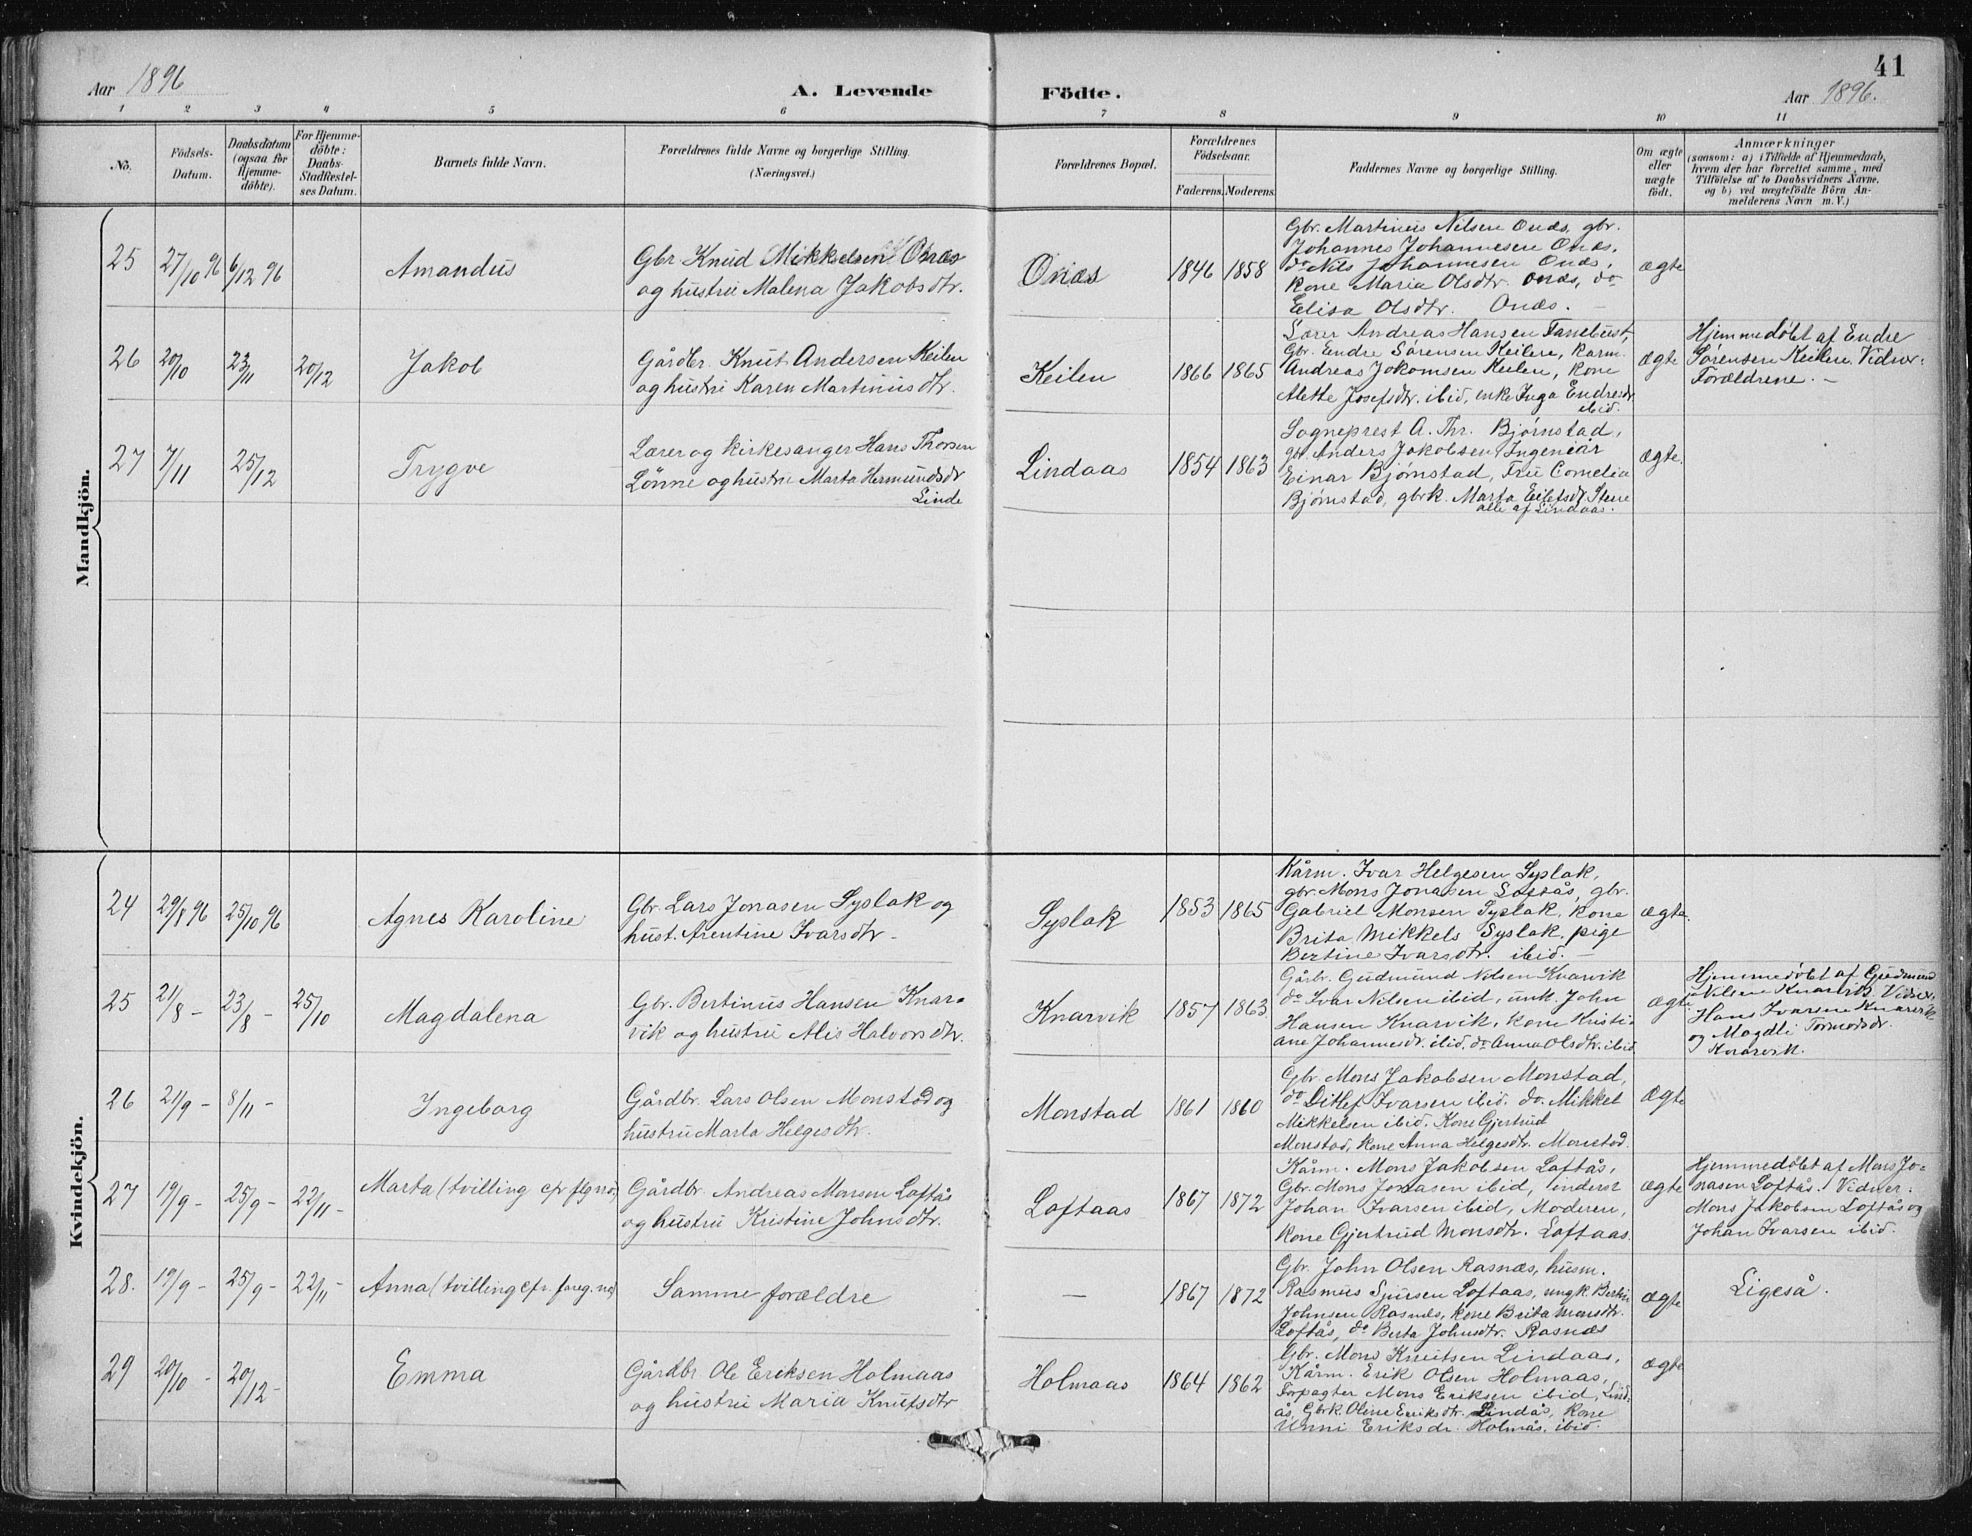 41
Aar 1896
A. Levende
Födte.
Aar 1896.
1 2 3 4 5 6 7 8 9 10 11
No.
Födsels-
Datum.
Daabsdatum
(ogsaa for
Hjemme-
döbte).
For Hjemme-
döbte:
Daabs-
Stadfæstel-
ses Datum.
Barnets fulde Navn.
Forældrenes fulde Navne og borgerlige Stilling.
(Næringsvei.)
Forældrenes Bopæl.
Forældrenes
Födselsaar.
Faderens. Moderens.
Faddernes Navne og borgerlige Stilling.
Om ægte
eller
uægte
födt.
Anmærkninger
(saasom: a) i Tilfælde af Hjemmedaab,
hvem der har forrettet samme, med
Tilföielse af to Daabsvidners Navne.
og b) ved uægtefödte Börn An-
melderens Navn m. V.)
Mandkjön.
25 27/10 96 6/12 96 Amandus
Gbr Knud Mikkelsen Onæs
og hustru Malena Jakobsdtr.
Onæs 1846 1858
Gbr. Martinus Nilsen Onæs, gbr.
Johannes Johannesen Onæs,
do Nils Johannesen Onæs,
kone Maria Olsdtr. Onæs, do
Elisa Olsdtr. Onæs. –
ægte
26 20/10 23/11 20/12 Jakob
Gårdbr. Knut Andersen Keilen
og hustru Karen Martinusdtr.
Keilen 1866 1865
Lærer Andreas Hansen Fanebust,
Gbr. Endre Sørensen Keilen, karm.
Andreas Jokomsen Keilen, kone
Alette Josefsdtr. ibid, enke Inga Endresdtr
ibid.
ægte
Hjemmedøbt af Endre
Sørensen Keilen. Vidner:
Forældrene. –
27 7/11 25/12 Trygve
Lærer og kirkesanger Hans Thorsen
Lønne og hustru Marta Hermundsdtr
Linde
Lindaas 1854 1863
Sogneprest A. Thr. Bjørnstad,
gbr. Anders Jakobsen, Ingeniør
Einar Bjørnstad, Fru Cornelia
Bjørnstad, gbrk. Marta Eilefsdtr. Stene
alle af Lindaas.
ægte.
Kvindekjön.
24 29/8 96 25/10 96 Agnes Karoline
Gbr. Lars Jonasen Syslak og
hust. Arentine Ivarsdtr. –
Syslak 1853 1865
Kårm. Ivar Helgesen Syslak,
gbr. Mons Jonasen Loftås, gbr.
Gabriel Monsen Syslak, kone
Brita Mikkels Syslak, pige
Bertine Ivarsdtr. ibid. –
ægte.
25 21/8 – 23/8 – 25/10 Magdalena
Gbr. Bertinus Hansen Knar-
vik og hustru Alis Halvorsdtr.
Knarvik 1857 1863
Gårbr. Gudmund Nilsen Knarvik
do Ivar Nilsen ibid, unk. John
Hansen Knarvik, kone Kristi-
ane Johannesdr. ibid. do Anna Olsdtr. ibid
ægte.
Hjemmedøbt af Gudmund
Nilsen Knarvik. Vidner,
Hans Ivarsen Knarvik
og Magdli Tormodsdr.
Knarvik.
26 21/9 – 8/11 – Ingeborg
Gårdbr. Lars Olsen Monstad og
hustru Marta Helgesdtr.
Monstad 1861 1860
Gbr. Mons Jakobsen Monstad,
do Ditlef Ivarsen ibid. do. Mikkel
Mikkelsen ibid. Kone Gjertrud
Monstad, kone Anna Helgesdtr. Monstad.
Ægte
27 19/9 – 25/9 – 22/11 – Marta (tvilling cfr flg no)
Gårdbr. Andreas Monsen Loftås
og hustru Kristine Johnsdtr.
Loftaas 1867 1872
Kårm. Mons Jakobsen Loftås,
Gbr. Mons Jonasen ibid, inderst
Johan Ivarsen ibid, Moderen,
kone Gjertrud Monsdtr. Loftaas.
ægte
Hjemmedøbt af Mons Jo-
nasen Loftås. Vidner.
Mons Jakobsen Loftås og
Johan Ivarsen ibid.
28. 19/9 – 25/9 – 22/11 – Anna (tvilling cfr. foreg. no)
Samme forældre
– 1867 1872
Gbr. John Olsen Rasnæs, husm.
Rasmus Sjursen Loftaas, ungk. Bertin
Johnsen Rasnæs, kone Brita Monsdtr.
Loftås, do Berta Johnsdtr. Rasnæs
ægte
Ligeså.
29 20/10 – 20/12 – Emma
Gårdbr Ole Eriksen Holmaas
og hustru Maria Knutsdtr
Holmaas 1864 1862
Gbr. Mons Knutsen Lindaas,
Kårm. Erik Olsen Holmaas,
Forpagter Mons Eriksen ibid, Lind-
ås, Gbrk. Oline Eriksdtr. Lindås, kone
Unni Eriksdr. Holmås, ibid.
ægte